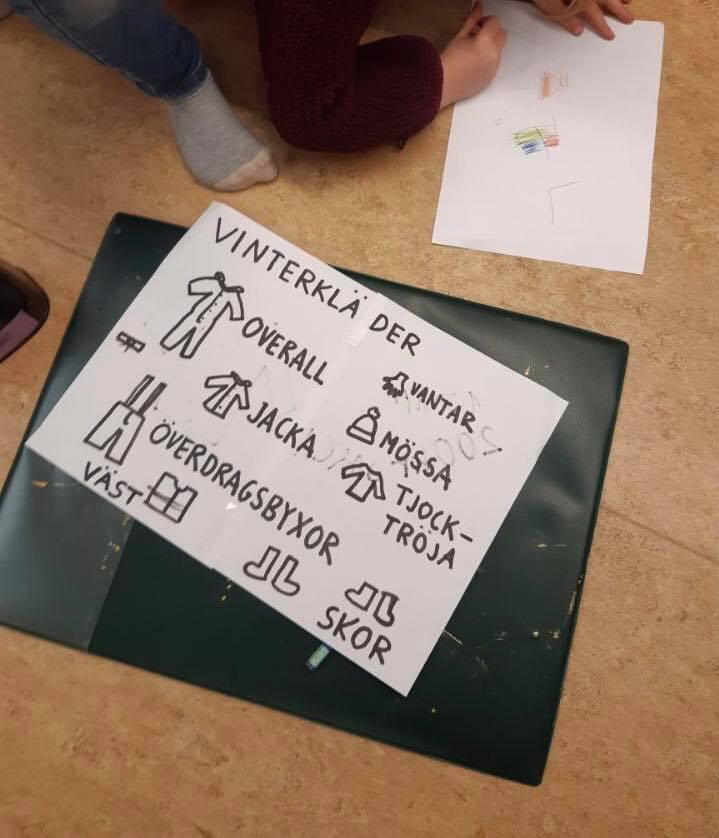 VINTERKLÄDER
OVERALL
JACKA
ÖVERDRAGSBYXOR
VÄST
VANTAR
MÖSSA
TJOCK-
TRÖJA
SKOR